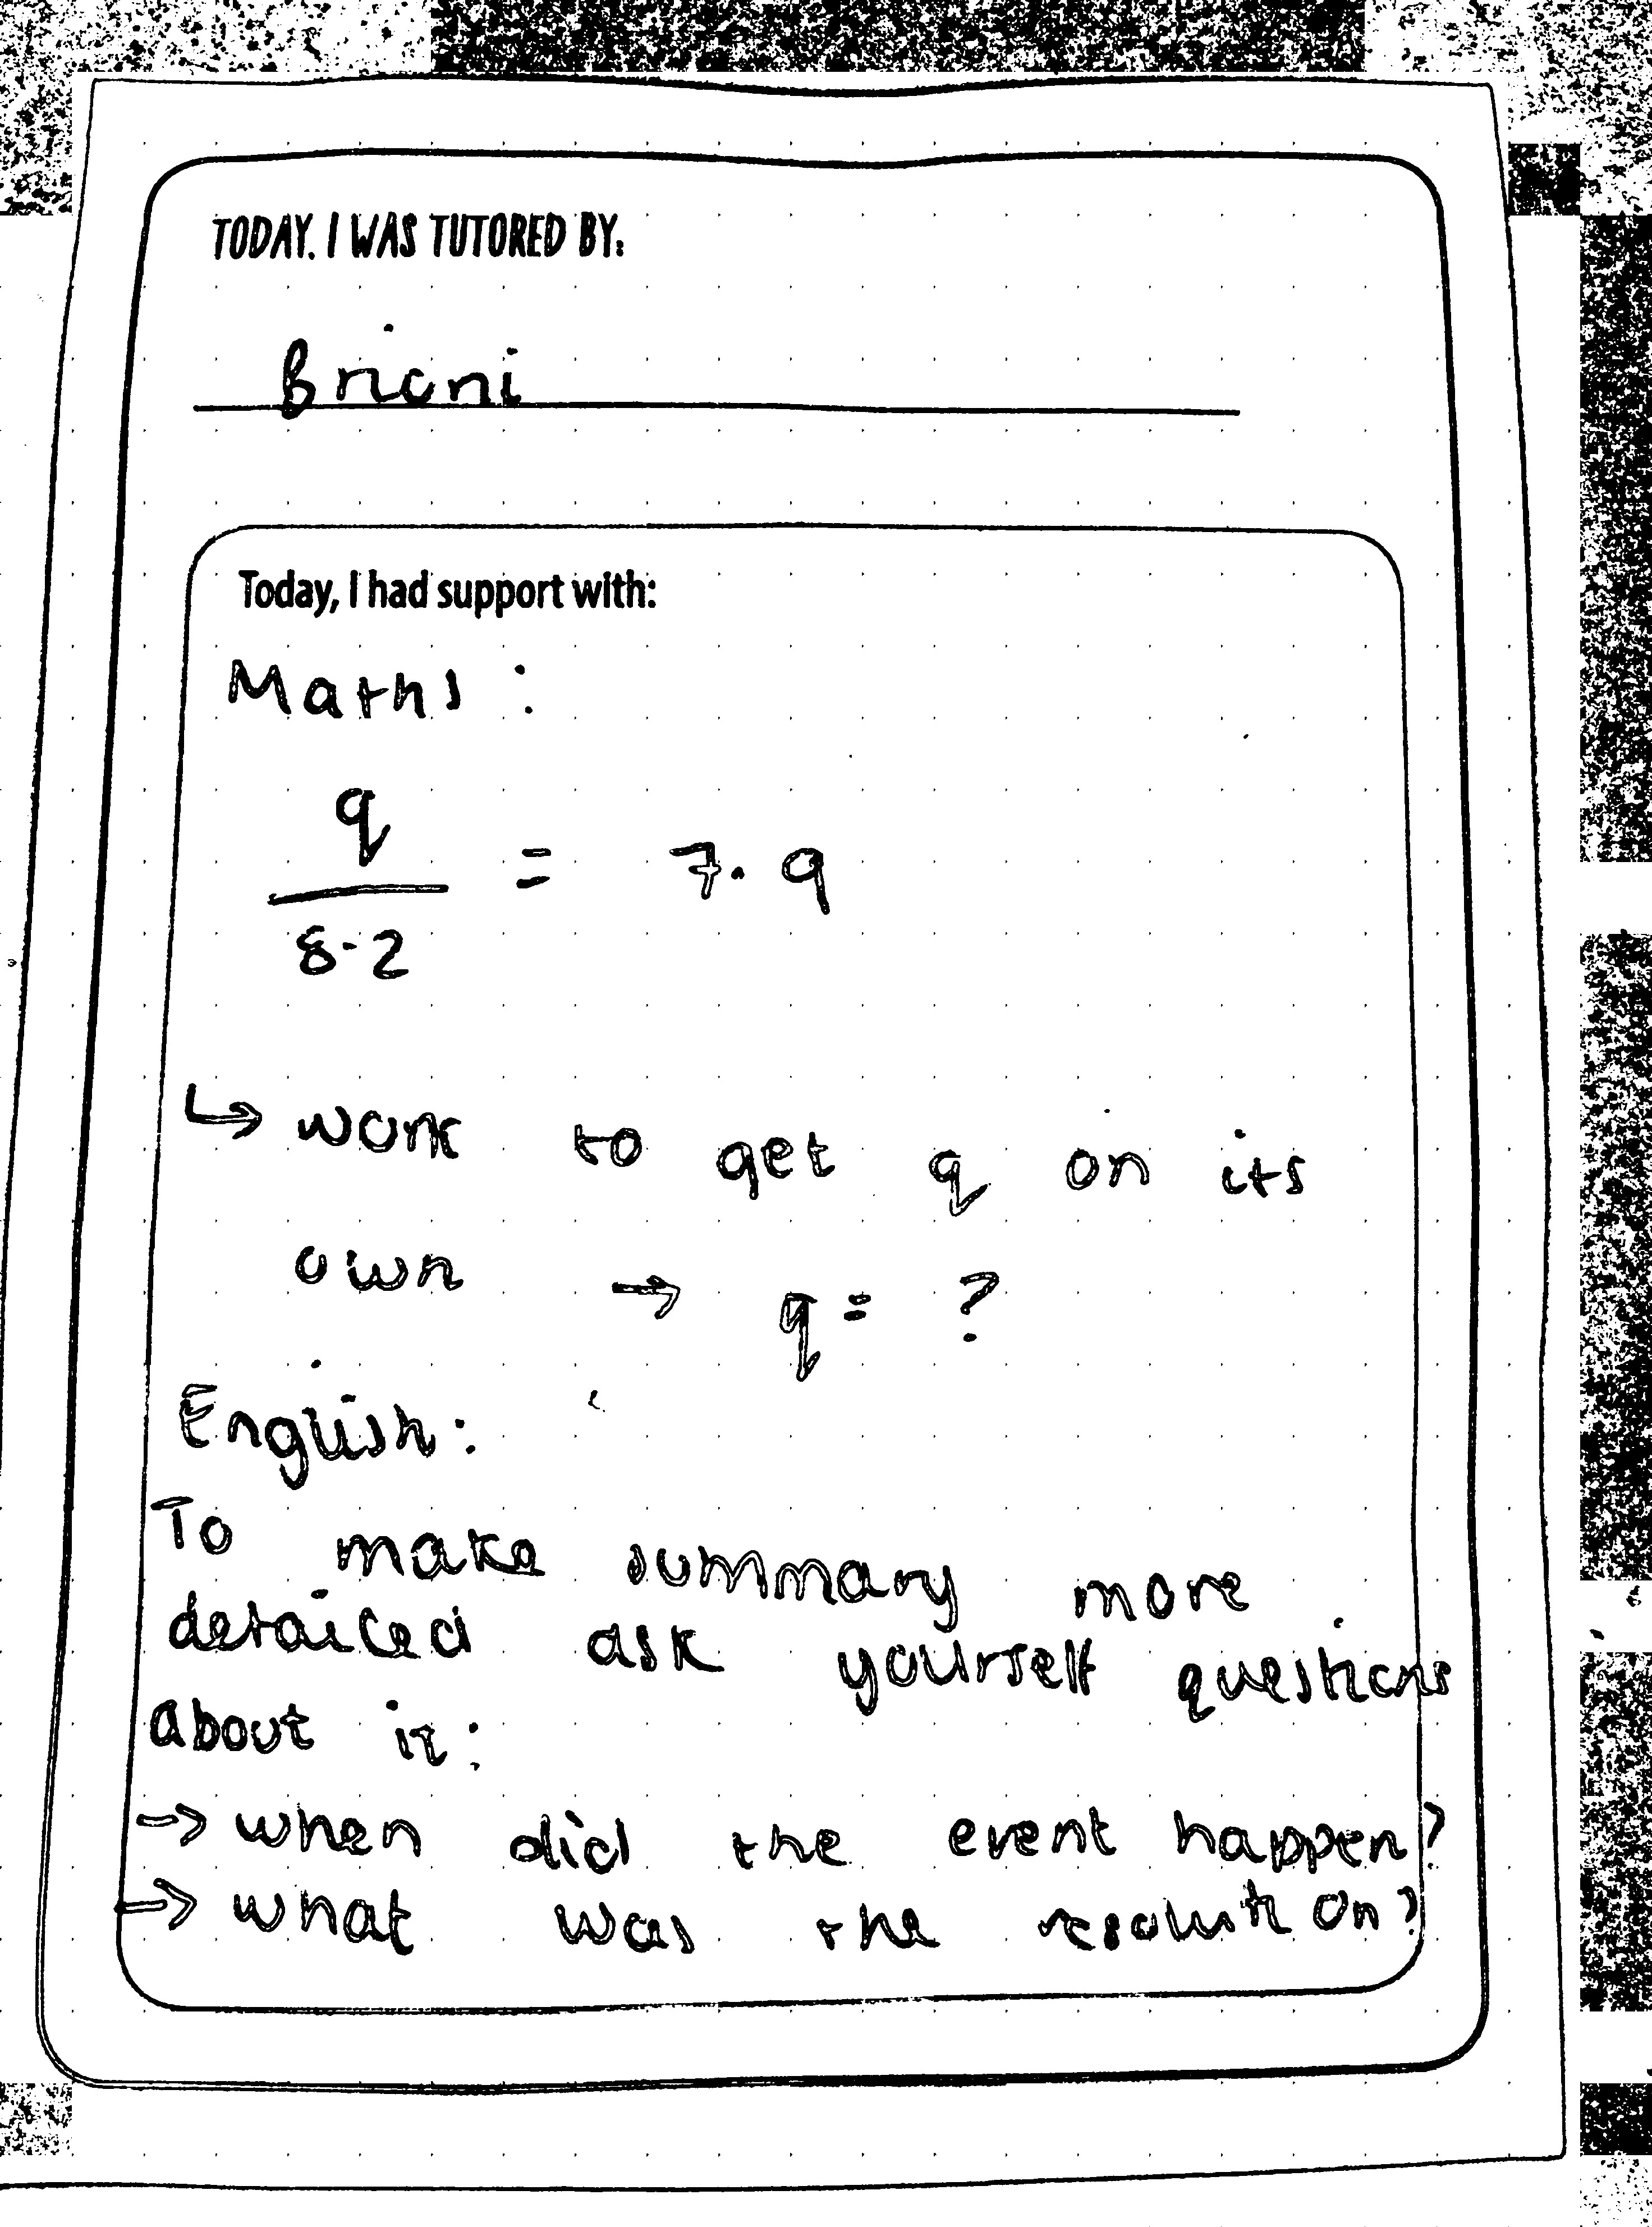 TODAY, I WAS TUTORED BY:
Brioni
Today, I had support with:
Maths:
q
8.2
= 7.9
↳ work to get q on its
own → q = ?
English:
To make summary more
detailed ask yourself questions
about it:
→ when did the event happen?
→ what was the resolution?